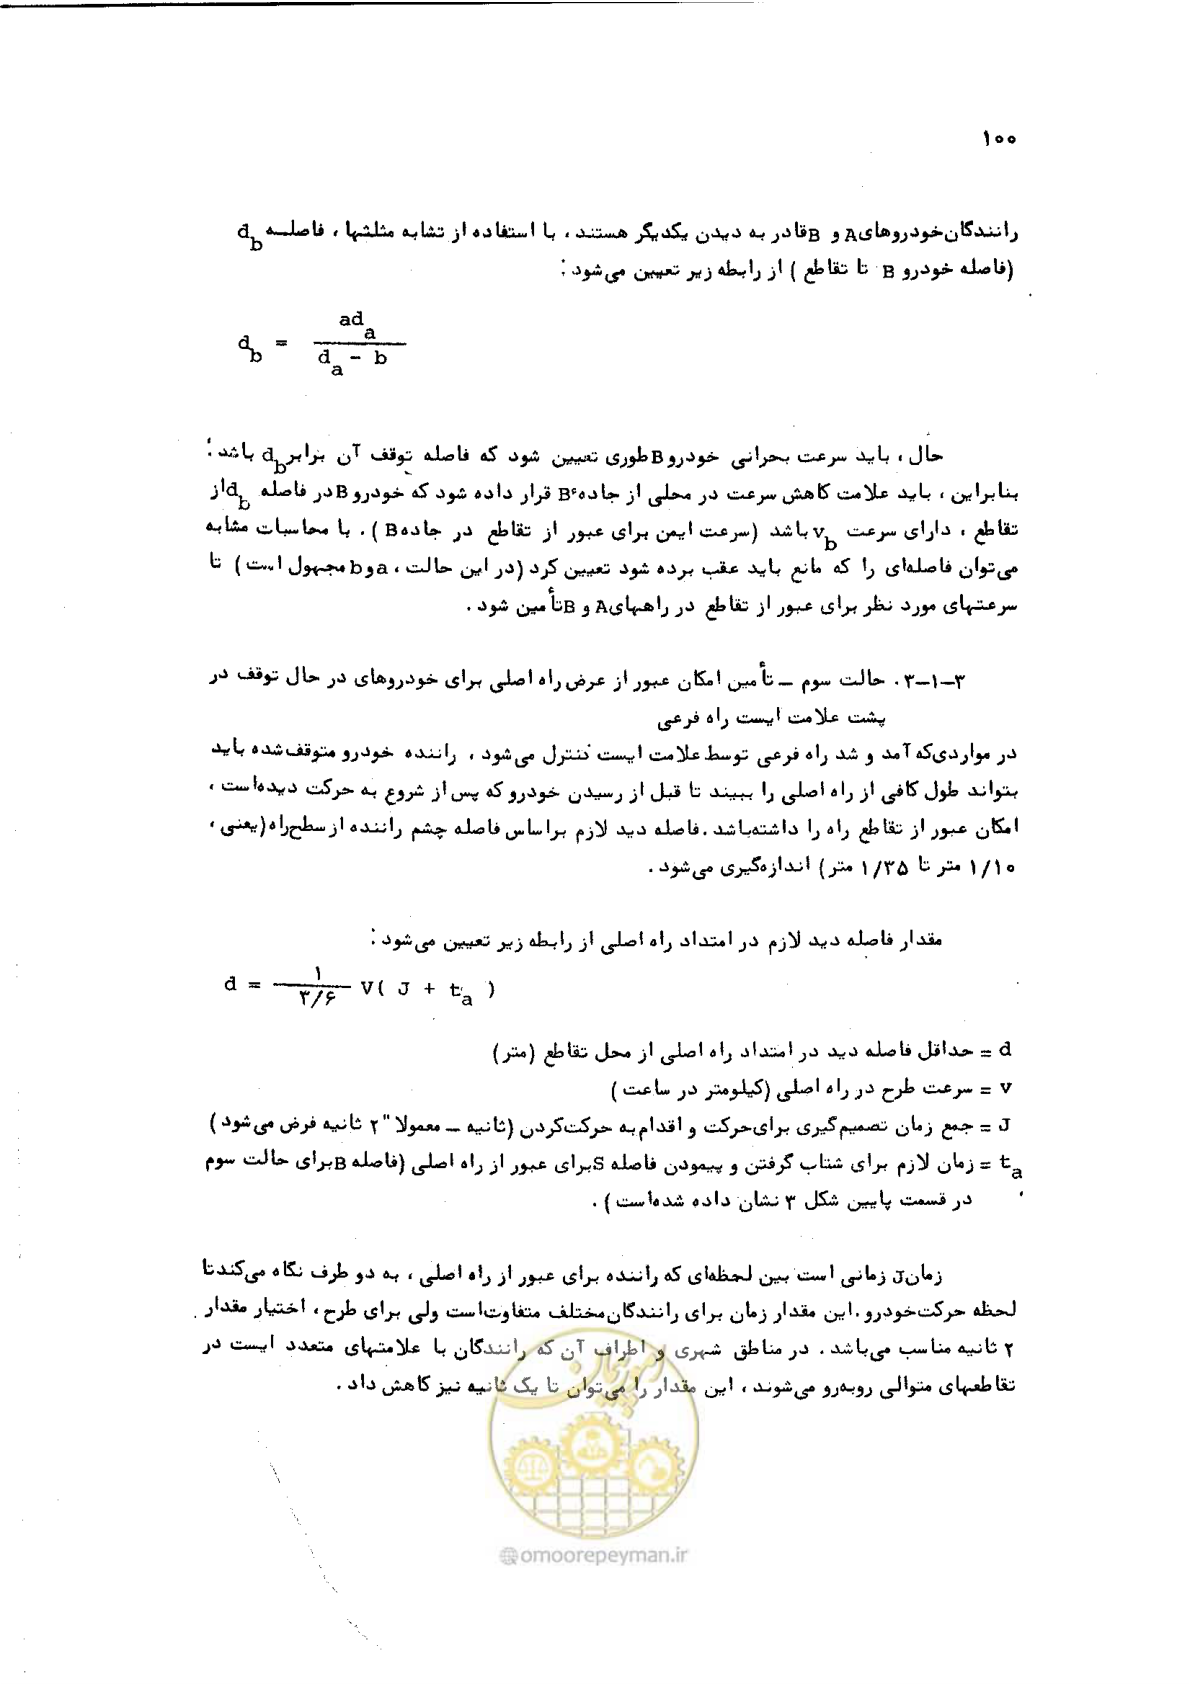 ۱۰۰
رانندگان‌خودروهایA و Bقادر به دیدن یکدیگر هستند، با استفاده از تشابه مثلثها، فاصلـــه d_b
(فاصله خودرو B تا تقاطع) از رابطه زیر تعیین می‌شود:
d_b = ad_a / (d_a - b)
حال، باید سرعت بحرانی خودروBطوری تعیین شود که فاصله توقف آن برابرd_b باشد؛
بنابراین، باید علامت کاهش سرعت در محلی از جادهٔB قرار داده شود که خودروBدر فاصله d_bاز
تقاطع، دارای سرعت v_b باشد (سرعت ایمن برای عبور از تقاطع در جادهB). با محاسبات مشابه
می‌توان فاصله‌ای را که مانع باید عقب برده شود تعیین کرد (در این حالت، aوb مجهول است) تا
سرعتهای مورد نظر برای عبور از تقاطع در راههایA و Bتأمین شود.
۳-۱-۳. حالت سوم ــ تأمین امکان عبور از عرض راه اصلی برای خودروهای در حال توقف در
پشت علامت ایست راه فرعی
در مواردی‌که آمد و شد راه فرعی توسط علامت ایست کنترل می‌شود، راننده خودرو متوقف‌شده باید
بتواند طول کافی از راه اصلی را ببیند تا قبل از رسیدن خودرو که پس از شروع به حرکت دیده‌است،
امکان عبور از تقاطع راه را داشته‌باشد. فاصله دید لازم براساس فاصله چشم راننده از سطح‌راه (یعنی،
۱/۱۰ متر تا ۱/۳۵ متر) اندازه‌گیری می‌شود.
مقدار فاصله دید لازم در امتداد راه اصلی از رابطه زیر تعیین می‌شود:
d = ۱ / ۳/۶ V( J + t_a )
d = حداقل فاصله دید در امتداد راه اصلی از محل تقاطع (متر)
V = سرعت طرح در راه اصلی (کیلومتر در ساعت)
J = جمع زمان تصمیم‌گیری برای‌حرکت و اقدام‌به حرکت‌کردن (ثانیه ــ معمولا" ۲ ثانیه فرض می‌شود)
t_a = زمان لازم برای شتاب گرفتن و پیمودن فاصله Sبرای عبور از راه اصلی (فاصله Bبرای حالت سوم
در قسمت پایین شکل ۳ نشان داده شده‌است).
زمانJ زمانی است بین لحظه‌ای که راننده برای عبور از راه اصلی، به دو طرف نگاه می‌کندتا
لحظه حرکت‌خودرو. این مقدار زمان برای رانندگان‌مختلف متفاوت‌است ولی برای طرح، اختیار مقدار
۲ ثانیه مناسب می‌باشد. در مناطق شهری و اطراف آن که رانندگان با علامتهای متعدد ایست در
تقاطعهای متوالی روبه‌رو می‌شوند، این مقدار را می‌توان تا یک ثانیه نیز کاهش داد.
امور پیمان
@omoorepeyman.ir